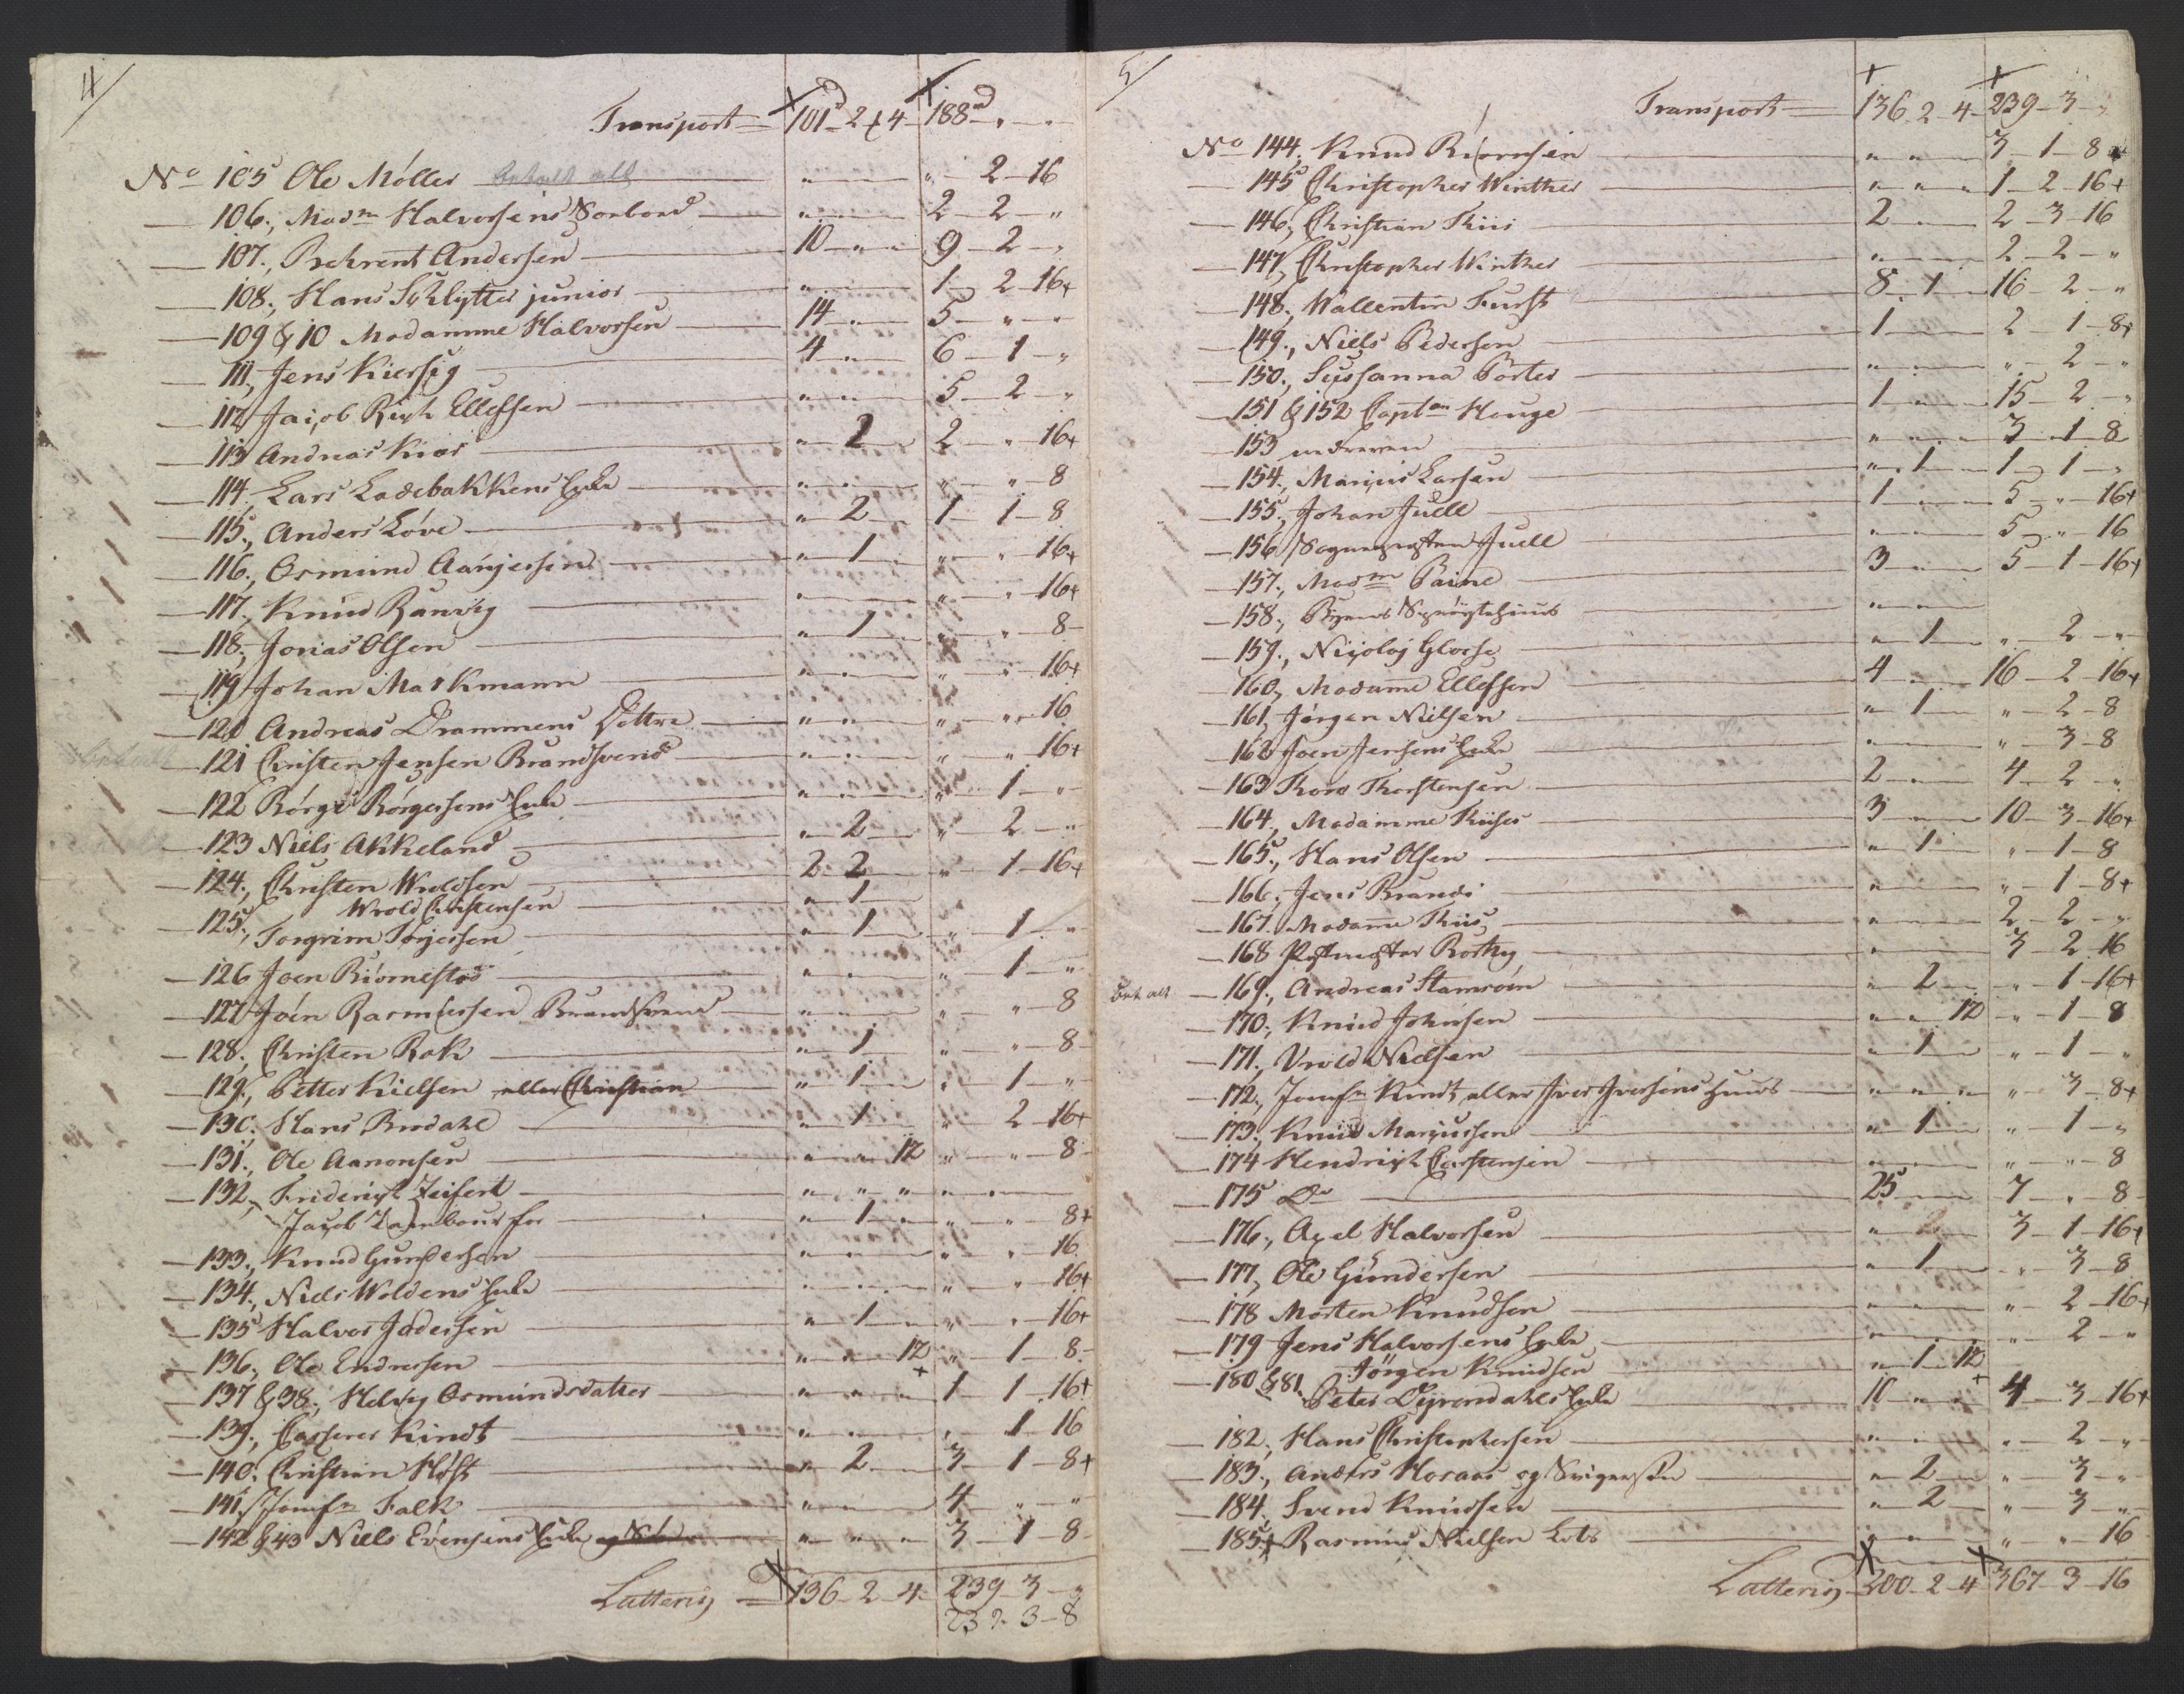 4/
Transport = 101 - 2 - 4 - 188 - " - "
No 105 Ole Möller betalt alt " " - 2 - 16
106., Madm Halvorsens Sønboed " 2 - 2 - "
107., Behrent Andersen 10 - " - " 9 - 2 - "
108., Hans Schlytter junior " 1 - 2 - 16+
109 & 10 Madamme Halvorsen 14 - " 5 - " - "
111, Jens Kiersig 4 - " 6 - 1 - "
112 Jacob Rich Ellefsen " - " 5 - 2 - "
113 Andreas Kiær " - 2 2 - " - 16+
114. Lars Ladebakkens Enke " - " " - " - 8
115., Anders Löve " - 2 1 - 1 - 8
116., Osmund Aanjersen " - 1 " - " - 16+
117., Knud Ranvig " " - " - 16+
118., Jonas Olsen " - 1 " - " - 8 -
119 Johan Markmann " - " " - " - 16+
120 Andreas Drammens Döttre " - " " - " - 16
121 Christen Jensen Brandsvend " - " " - " - 16+
122 Börge Börgersens Enke " - " " - 1 - "
123 Niels Akkeland " - 2 " - 2 - "
124., Christen Wroldsen 2 - 2 " - 1 - 16+
Wrold Christensen " - 1
125., Torgrim Torjersen " - 1 " - 1 - "
126 Joen Biörnestad " - " " - 1 - "
127 Joen Rasmussen Brandsvend " - " " - " - 8
128., Christen Rok " - 1 " - " - 8 -
129., Petter Kielsen eller Christian " - 1 " - 1 - "
130. Hans Birdahl " - 1 " - 2 - 16+
131., Ole Aanonsen " - " 12 " - " - 8 -
132, Friderich Zeifert " - " - " " - "
Jacob Tambour for " - 1 - " " - " - 8+
133., Knud Gundersen " - " " - " - 16
134., Niels Woldens Enke " - " " - " - 16+
135 Halvor Jödersen " - 1 " - " - 16+
136., Ole Endresen " - " 12 " - 1 - 8 -
137 & 38., Helvig Osmundsdatter " - " - " 1 - 1 - 16+
139., Casserer Kindt " - " " - 1 16
140. Christian Höst " - 2 3 - 1 - 8+
141., Jomfr Falk " - " 4 - " - "
142 & 43 Niels Evensens Enke " - " - " 3 - 1 - 8 -
Latteris = 136 - 2 - 4 - 239 - 3 - "
237. 3 - 8
5/
Transport = 136 - 2 - 4 - 239 - 3 - "
No 144. Knud Biörnsen " - " 3 - 1 - 8 +
145 Christopher Winther " - " - " 1 - 2 - 16+
146, Christian Thiis 2 - " 2 - 3 - 16
147, Christopher Winther " - " 2 - 2 - "
148., Wallentin Furst 8 - 1 16 - 2 - "
149., Niels Pedersen 1 - " 2 - 1 - 8+
150., Sussanna Porter " - " " - 2 - "
151 & 152 Captn Houge 1 - " 15 - 2 - "
153 " - " - " 3 - 1 - 8
154., Marcus Larsen " - 1 1 - 1 - "
155., Johan Juell 1 - " 5 - " - 16+
156 Sognepresten Juell " - " 5 - " 16
157., Madm Paine 3 - " 5 - 1 - 16+
158., Byens Spröytehuus " - "
159., Nicolaj Glorse " - 1 " - 2 - "
160, Madame Ellefsen 4 - " 16 - 2 - 16+
161, Jörgen Nielsen " - 1 " - 2 - 8
162 Joen Jensens Enke " " - 3 - 8
163 Thore Thorstensen 2 - " 4 - 2 - "
164., Madamme Thiises 3 - " 10 - 3 - 16+
165., Hans Olsen " - 1 " 1 - 8
166., Jens Brandi " " - 1 - 8+
167. Madame Thiis " 2 - 2 - "
168 Postmester Rothy " 3 - 2 16
betalt 169., Andreas Stamsöen " - 2 " - 1 - 16+
170., Knud Johnsen " - " 12 " - 1 - 8
171., Vrold Nielsen " - 1 " - 1 - "
172., Jomfr Kindt eller Iver Iversens Huus " - " - " " - 3 - 8+
173., Knud Marcussen " - 1 " - 1 - "
174 Hendrich Carstensen " " - " - 8
175 Do 25 - " 7 - " 8
176., Axel Halvorsen " - 2 3 - 1 - 16+
177, Ole Gundersen " - 1 " - 3 - 8
178 Morten Knudsen " " - 2 - 16+
179 Jens Halvorsens Enke " " - 2 - "
180 & 81 Jörgen Knudsen " - 1 - 12
Peter Dyrendahls Enke 10 - " - " 4 - 3 - 16+
182, Hans Christophersen " - " " - 2 - "
183., Anders Horaas og " - 2 " - 3 - "
184, Svend Knudsen " - 2 " - 3 - "
185., Rasmus Nielsen Lods " - " " - " - 16
Latteris 200 - 2 - 4 367 - 3 - 16